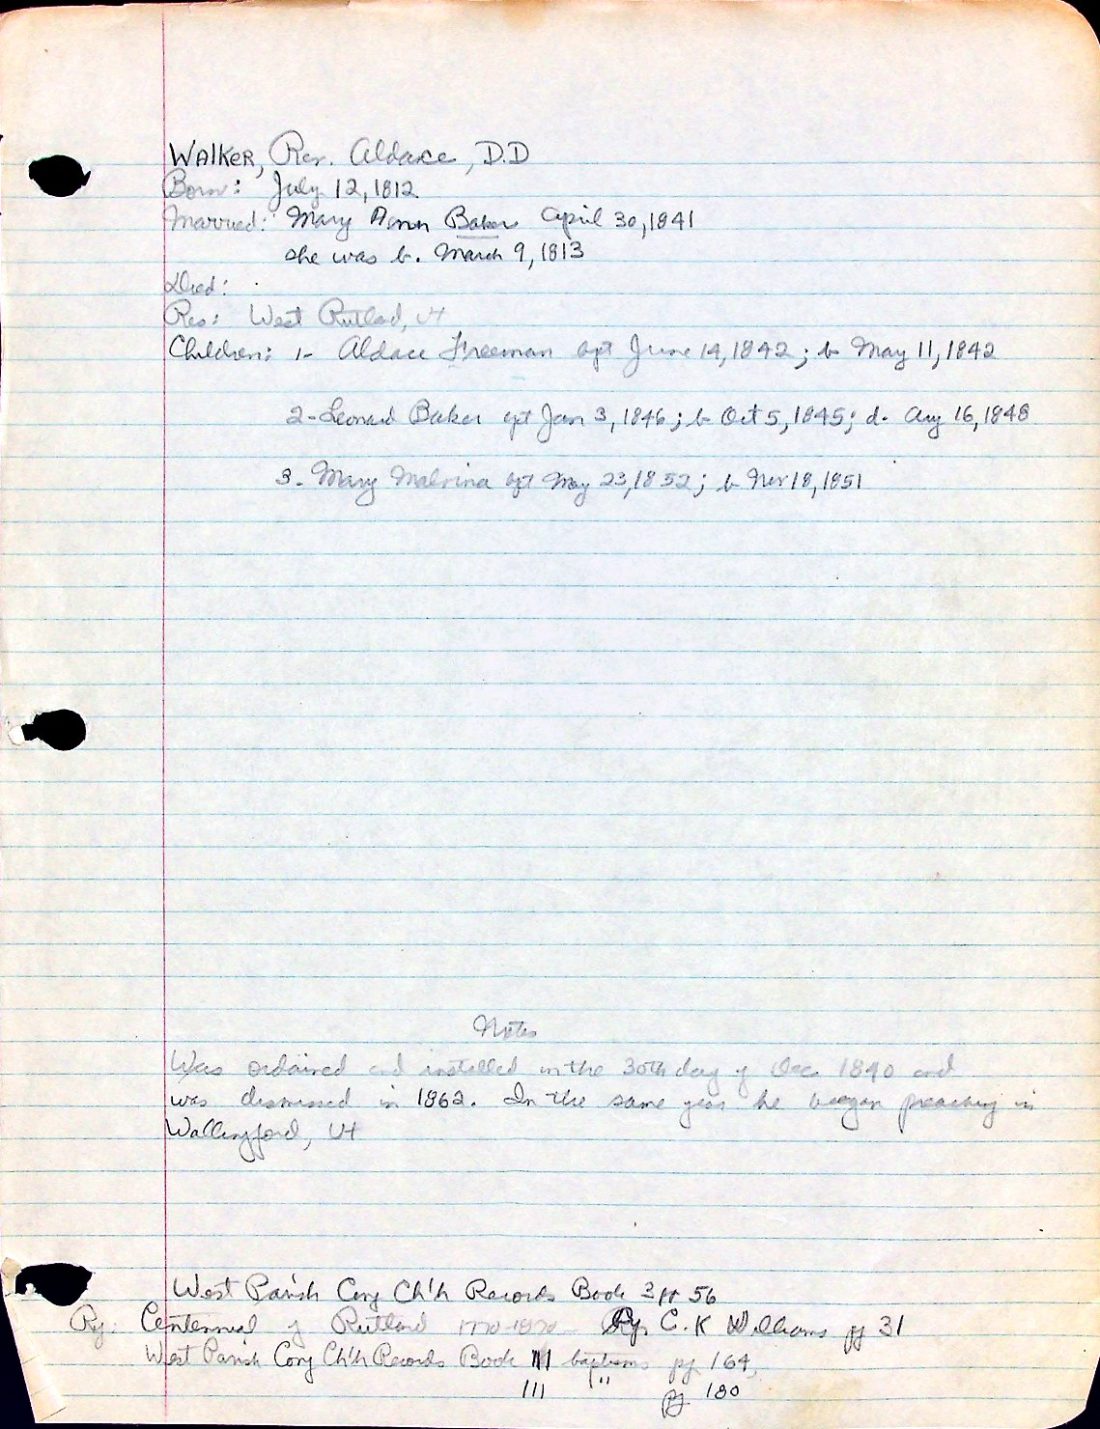 WALKER, Rev. Aldace, D.D
Born: July 12, 1812
Married: Mary Ann Baker April 30, 1841
she was b. March 9, 1813
Died:
Res: West Rutland, Vt
Children: 1- Aldace Freeman bpt June 14, 1842; b May 11, 1842
2- Leonard Baker bpt Jan 3, 1846; b Oct 5, 1845; d. Aug 16, 1848
3. Mary Malvina bpt May 23, 1852; b Nov 18, 1851
Notes
Was ordained and installed on the 30th day of Dec 1840 and
was dismissed in 1862. In the same year he began preaching in
Wallingford, Vt
West Parish Cong Ch'h Records Book 3 pt 56
Rf: Centennial of Rutland 1770-1870 By C. K Williams pg 31
West Parish Cong Ch'h Records Book III baptisms pg. 164,
III " pg 180